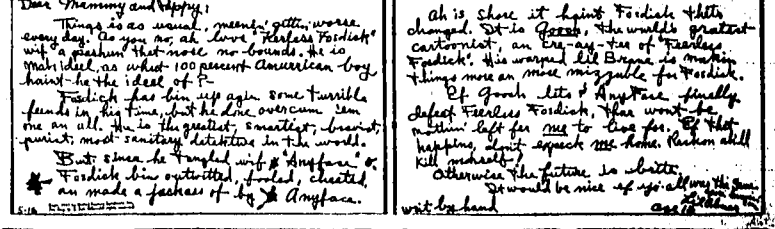 Dear Mammy and Pappy:
Things is as usual, meenin' gittin' worse
every day. As you no, ah love "Ferless Fosdick"
wif a pashun that nose no bounds. He is
mah ideel, as whut 100 percent Amurrican boy
haint he the ideel of?
Fosdick has bin up agin some turrible
feends in his time, but he done overcum 'em
one an all. He is the greatest, smartest, bravist,
purist, most sanitary detecktive in the world.
But since he tangled wif "Anyface"
Fosdick bin outwitted, fooled, cheated,
an made a jackass of by Anyface.
5-16
Ah is shore it haint Fosdick thets
changed. It is Gooch, the world's greatest
cartoonist, an cre-ay-ter of "Fearless
Fosdick". His warped lil Brane is makin
things more an more mizzuble for Fosdick.
Ef Gooch lets Anyface finally
defeat Fearless Fosdick, thar won't be
nothin' left fer me to live for. Ef thet
happins, don't expeck me home. Reckon ah'll
kill mahself!
Otherwise the future is brite.
It would be nice ef yo'-all
writ by hand